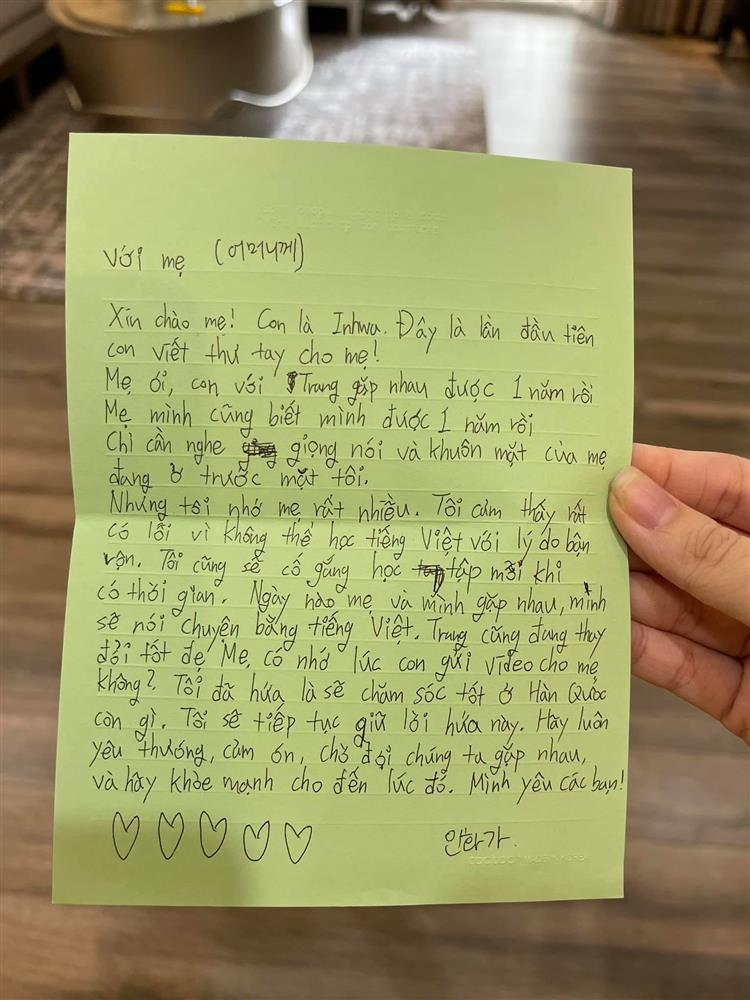 Với mẹ (어머니께)
Xin chào mẹ! Con là Inhwa. Đây là lần đầu tiên
con viết thư tay cho mẹ!
Mẹ ơi, con với Trang gặp nhau được 1 năm rồi
Mẹ mình cũng biết mình được 1 năm rồi
Chỉ cần nghe giọng nói và khuôn mặt của mẹ
đang ở trước mặt tôi.
Nhưng tôi nhớ mẹ rất nhiều. Tôi cảm thấy rất
có lỗi vì không thể học tiếng Việt với lý do bận
rộn. Tôi cũng sẽ cố gắng học tập mỗi khi
có thời gian. Ngày nào mẹ và mình gặp nhau, mình
sẽ nói chuyện bằng tiếng Việt. Trang cũng đang thay
đổi tốt đẹ. Mẹ, có nhớ lúc con gửi video cho mẹ
không? Tôi đã hứa là sẽ chăm sóc tốt ở Hàn Quốc
còn gì. Tôi sẽ tiếp tục giữ lời hứa này. Hãy luôn
yêu thương, cảm ơn, chờ đợi chúng ta gặp nhau,
và hãy khỏe mạnh cho đến lúc đó. Mình yêu các bạn!